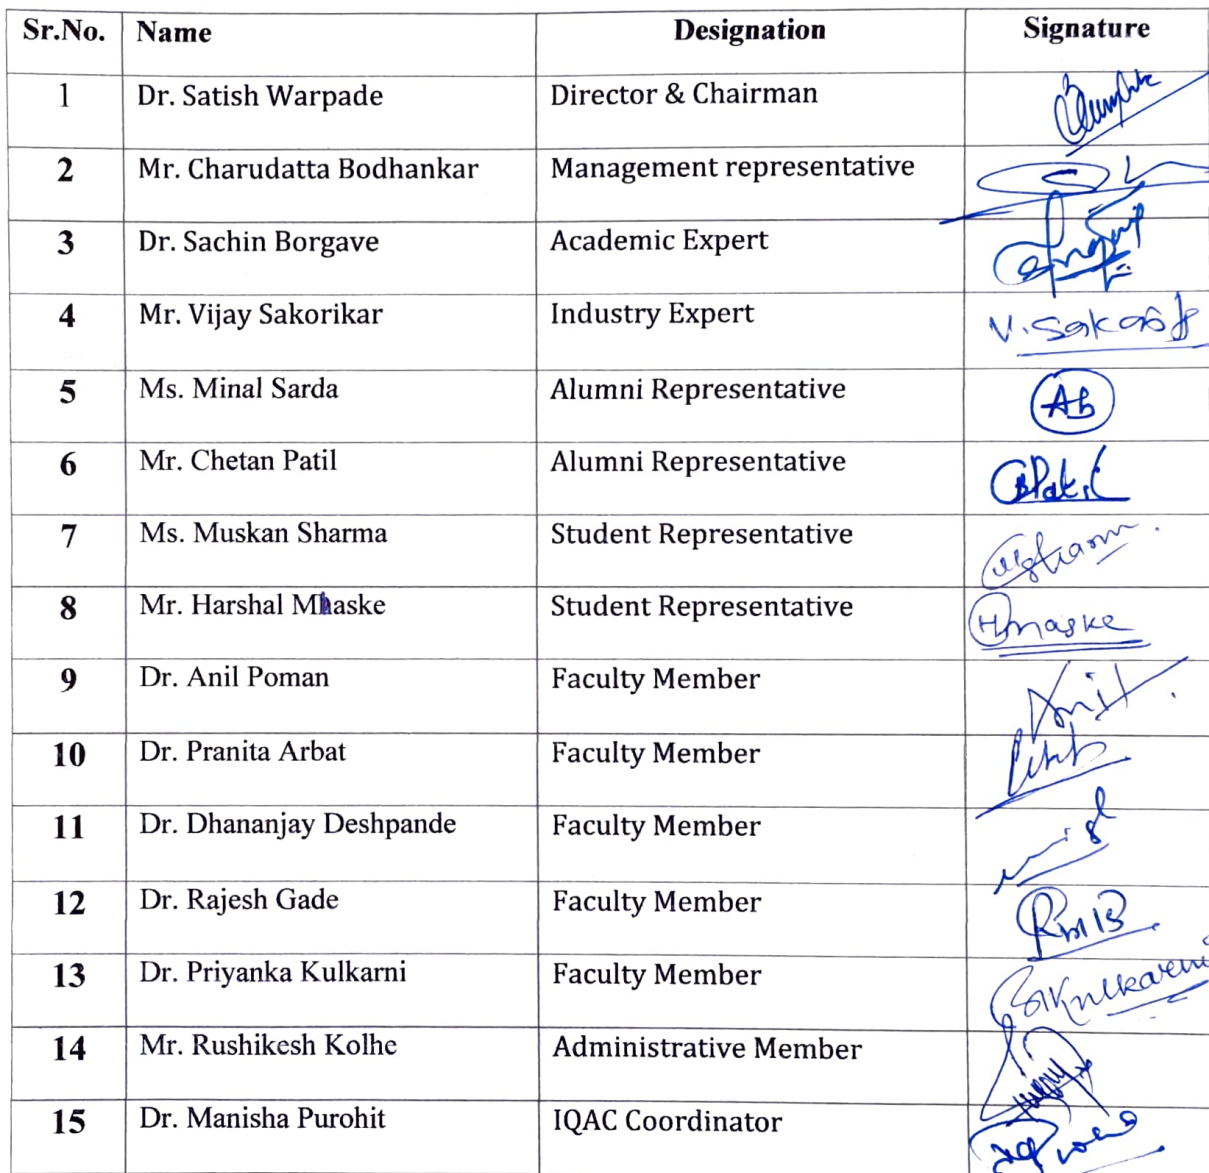 Sr.No. Name Designation Signature
1 Dr. Satish Warpade Director & Chairman
2 Mr. Charudatta Bodhankar Management representative
3 Dr. Sachin Borgave Academic Expert
4 Mr. Vijay Sakorikar Industry Expert
5 Ms. Minal Sarda Alumni Representative
6 Mr. Chetan Patil Alumni Representative
7 Ms. Muskan Sharma Student Representative
8 Mr. Harshal Mhaske Student Representative Hmaske
9 Dr. Anil Poman Faculty Member
10 Dr. Pranita Arbat Faculty Member
11 Dr. Dhananjay Deshpande Faculty Member
12 Dr. Rajesh Gade Faculty Member
13 Dr. Priyanka Kulkarni Faculty Member
14 Mr. Rushikesh Kolhe Administrative Member
15 Dr. Manisha Purohit IQAC Coordinator